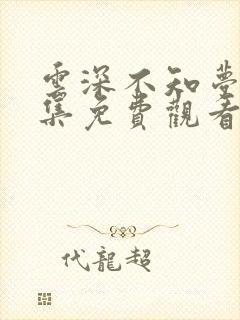 雲深不知夢
集免費觀看
代龍超